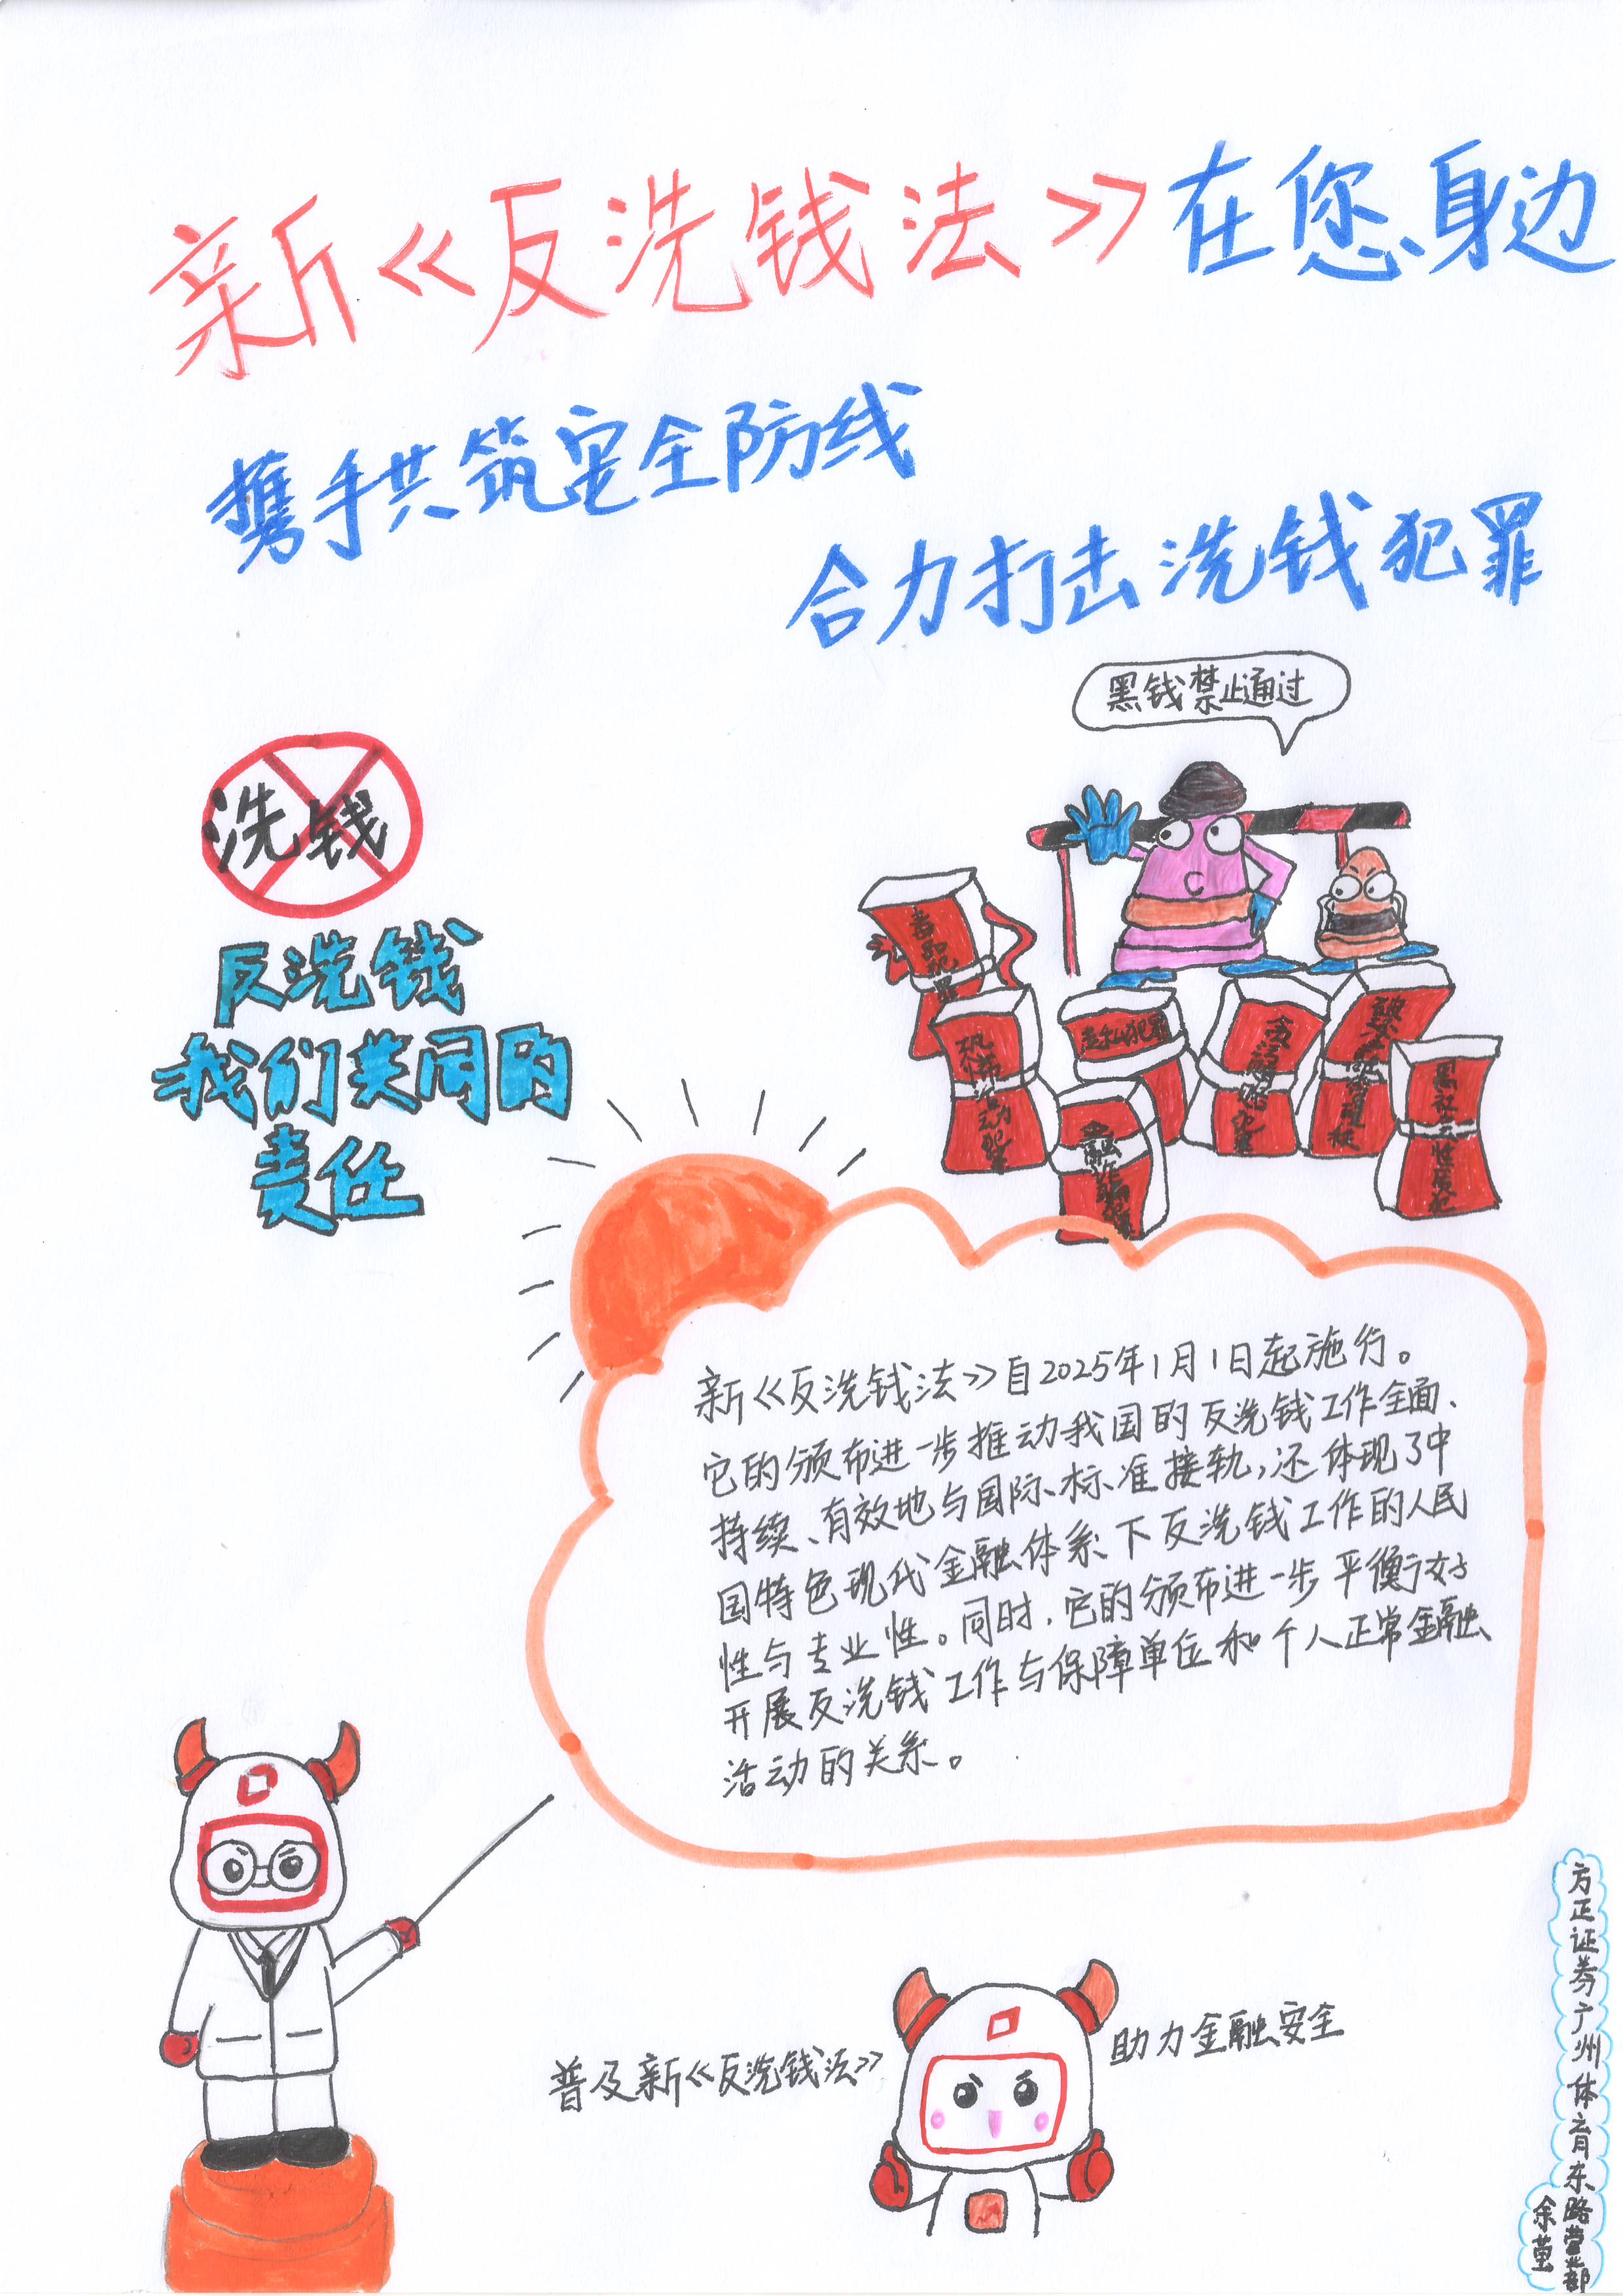 新《反洗钱法》在您身边
携手共筑安全防线
合力打击洗钱犯罪
黑钱禁止通过
洗钱
反洗钱
我们共同的
责任
毒品犯罪
恐怖活动犯罪
走私犯罪
金融诈骗犯罪
贪污贿赂犯罪
黑社会性质犯
新《反洗钱法》自2025年1月1日起施行。
它的颁布进一步推动我国的反洗钱工作全面、
持续、有效地与国际标准接轨,还体现了中
国特色现代金融体系下反洗钱工作的人民
性与专业性。同时,它的颁布进一步平衡好
开展反洗钱工作与保障单位和个人正常金融
活动的关系。
普及新《反洗钱法》
助力金融安全
方正证券广州体育东路营业部
余茧